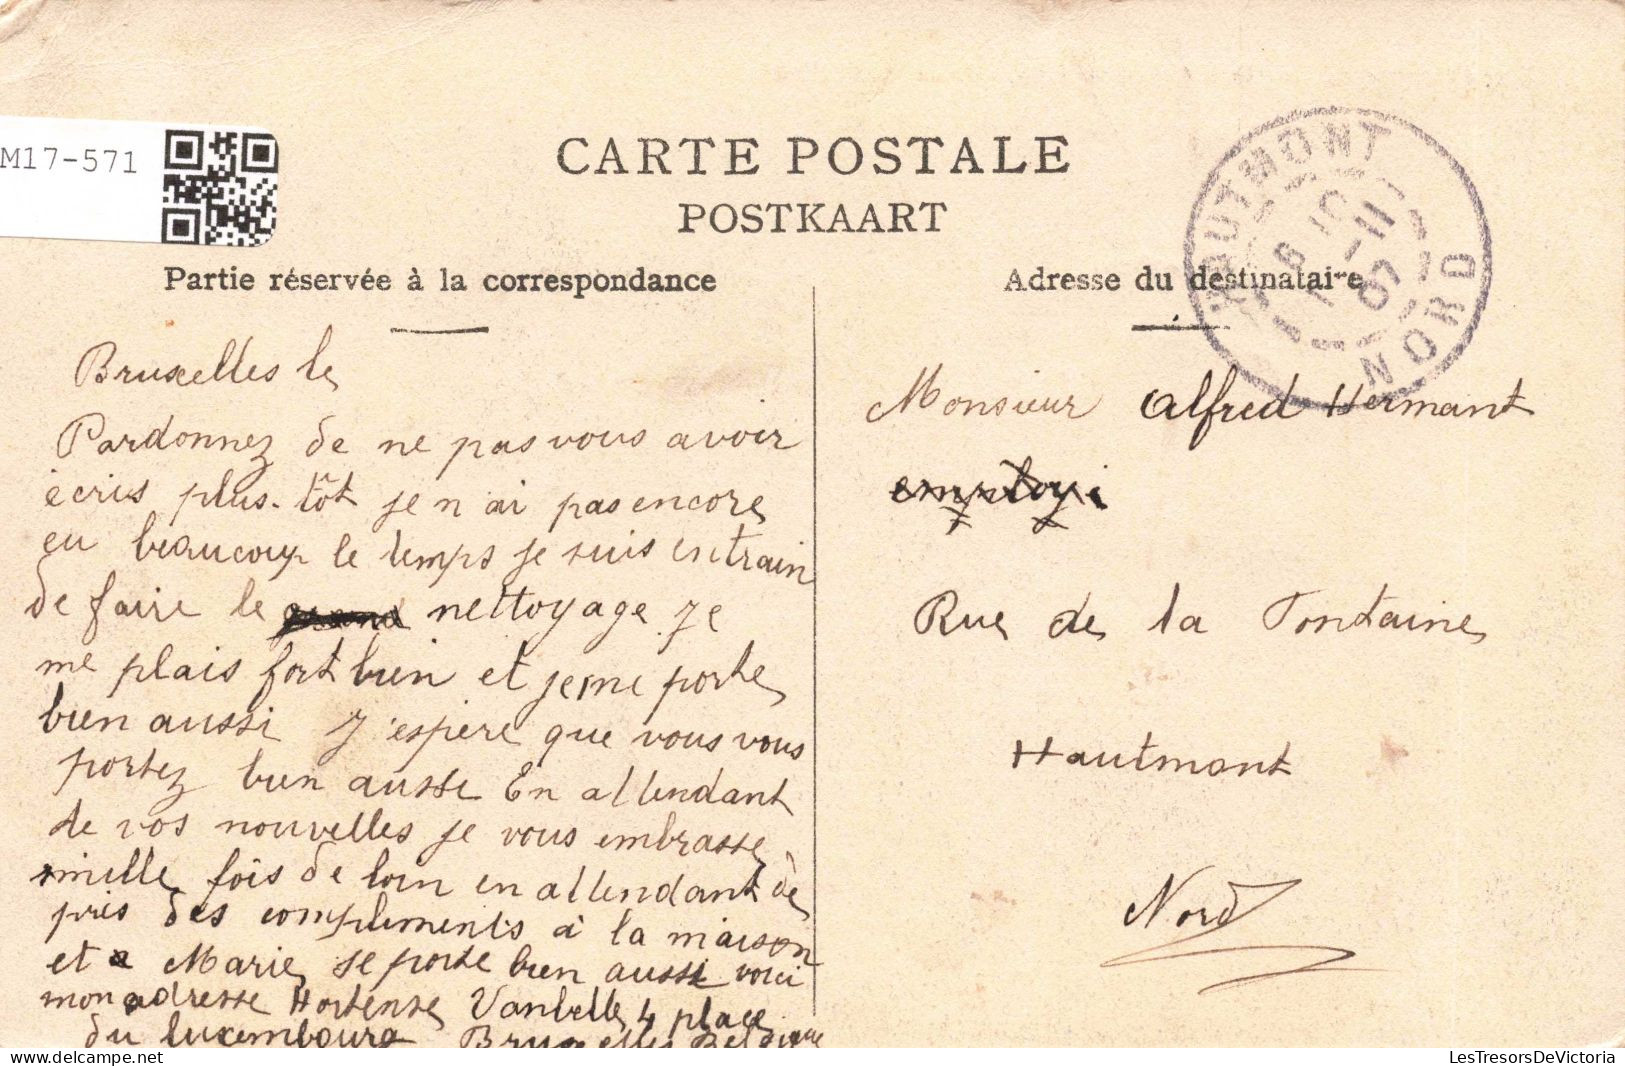 M17-571
CARTE POSTALE
POSTKAART
Partie réservée à la correspondance
Bruxelles le
Pardonnez de ne pas vous avoir
écris plus-tôt je n ai pas encore
eu beaucoup le temps je suis entrain
de faire le grand nettoyage Je
me plais fort bien et je me porte
bien aussi J'espère que vous vous
portez bien aussi En attendant
de vos nouvelles je vous embrasse
mille fois de loin en attendant de
près des compliments à la maison
et a Marie se porte bien aussi voici
mon adresse Hortense Vanbelle 4 place
du luxembourg Bruxelles Belgique
Adresse du destinataire
HAUTMONT
NORD
Monsieur Alfred Hermant
employé
Rue de la Fontaine
Hautmont
Nord
delcampe.net
LesTresorsDeVictoria